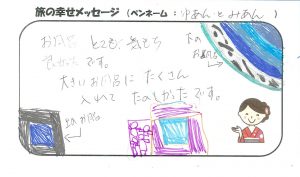 旅の幸せメッセージ (ペンネーム：ゆあんとみあん)
お風呂 とても、気もち
良かったです。
大きいお風呂に たくさん
入れて たのしかったです。
下の
お風呂
上のお風呂